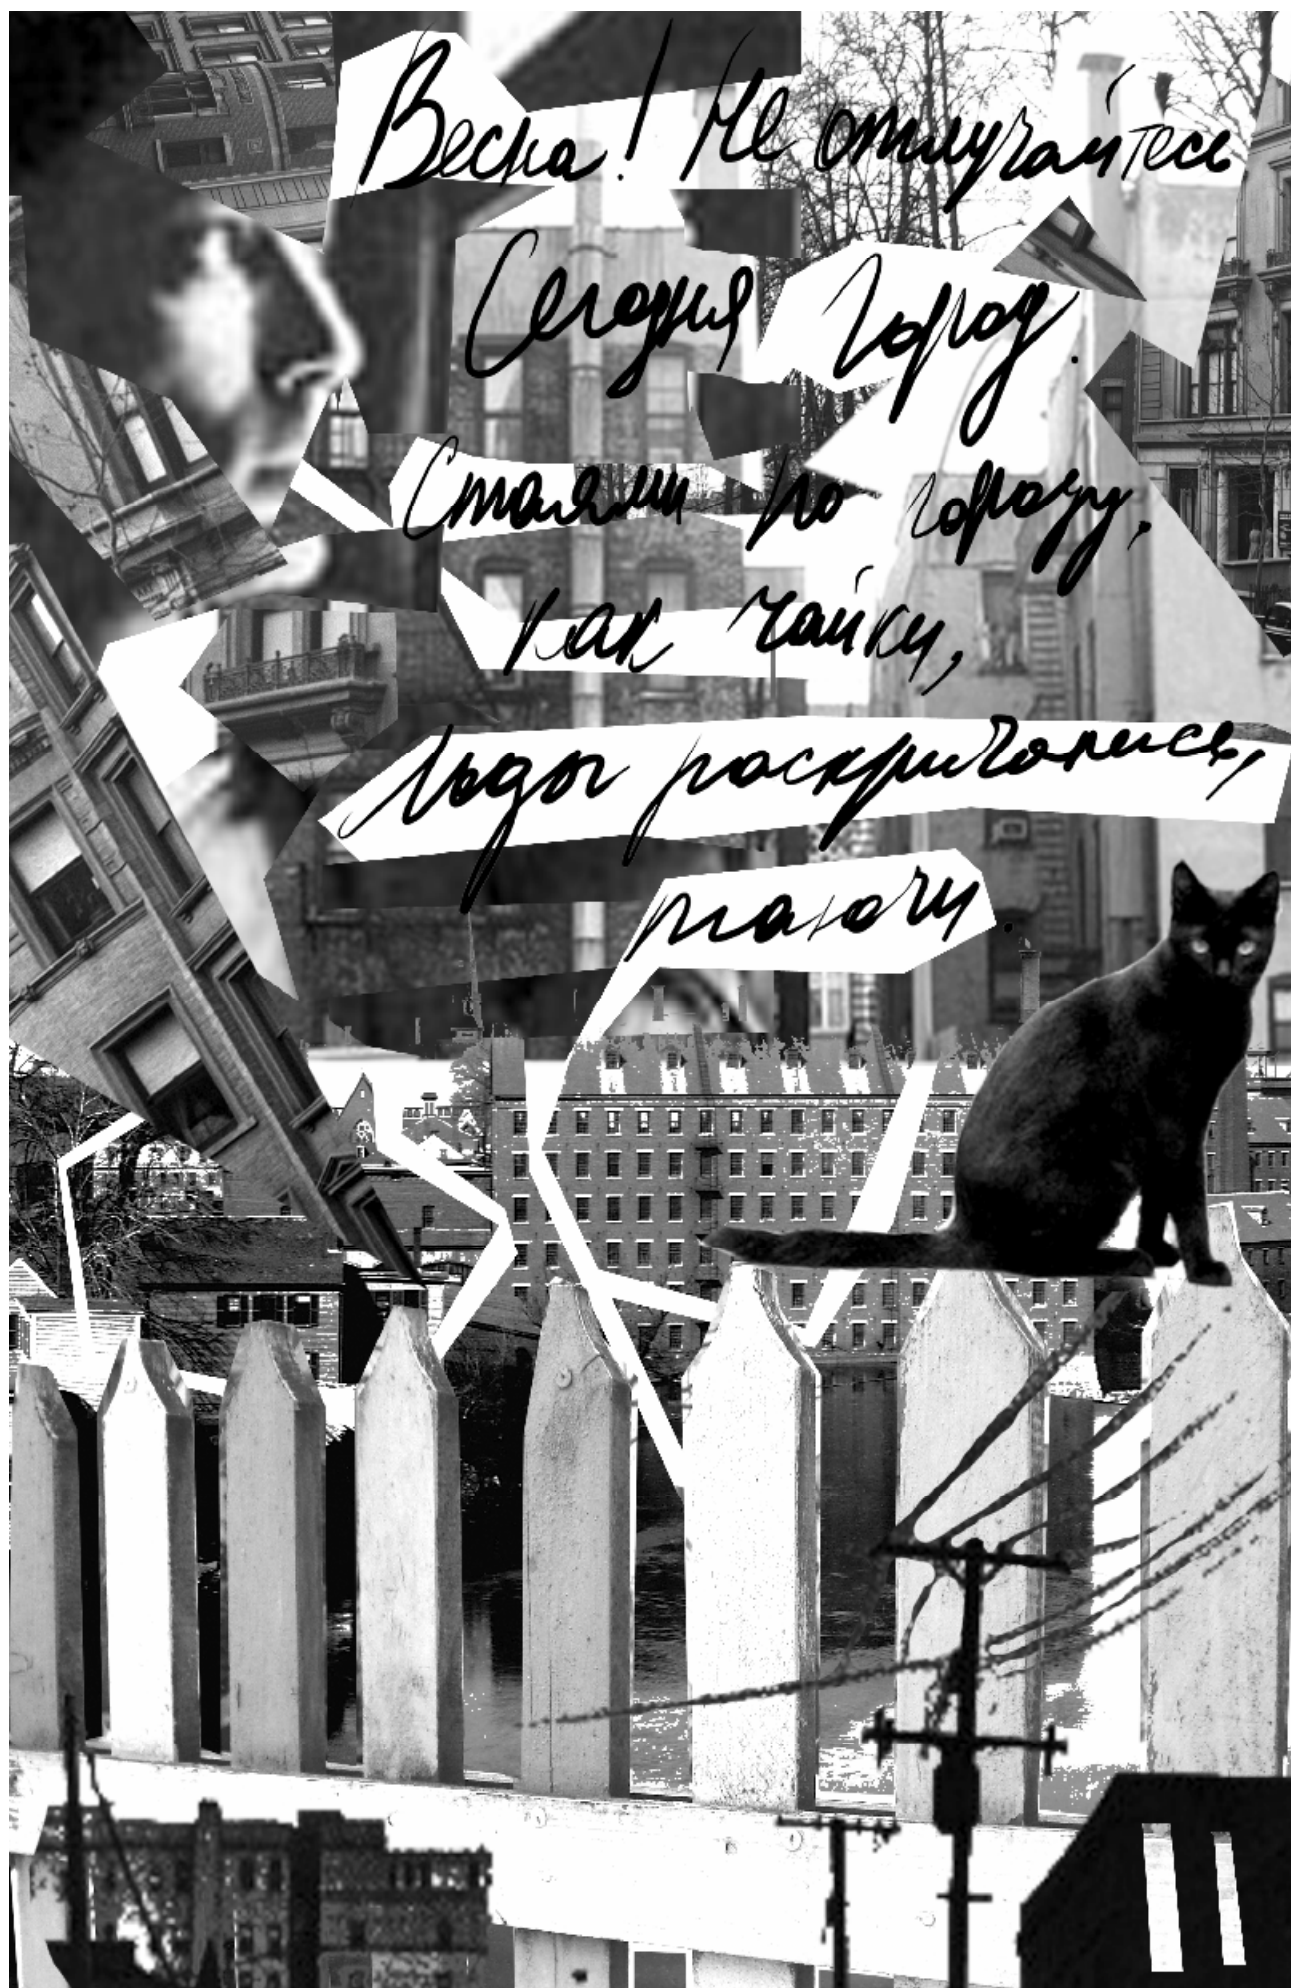 Весна! Не отлучайтесь
Сегодня город.
Стаями по городу,
как чайки,
льды раскричались,
таючи.